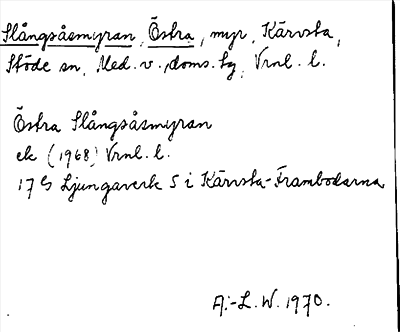 Slångsåsmyran, Östra, myr, Kärvsta,
Stöde sn, Med. v. doms. tg, Vrnl. l.
Östra Slångsåsmyran
ek (1968) Vrnl. l.
Ljungaverk S i Kärvsta-Frambodarna
A.-L. W. 1970.